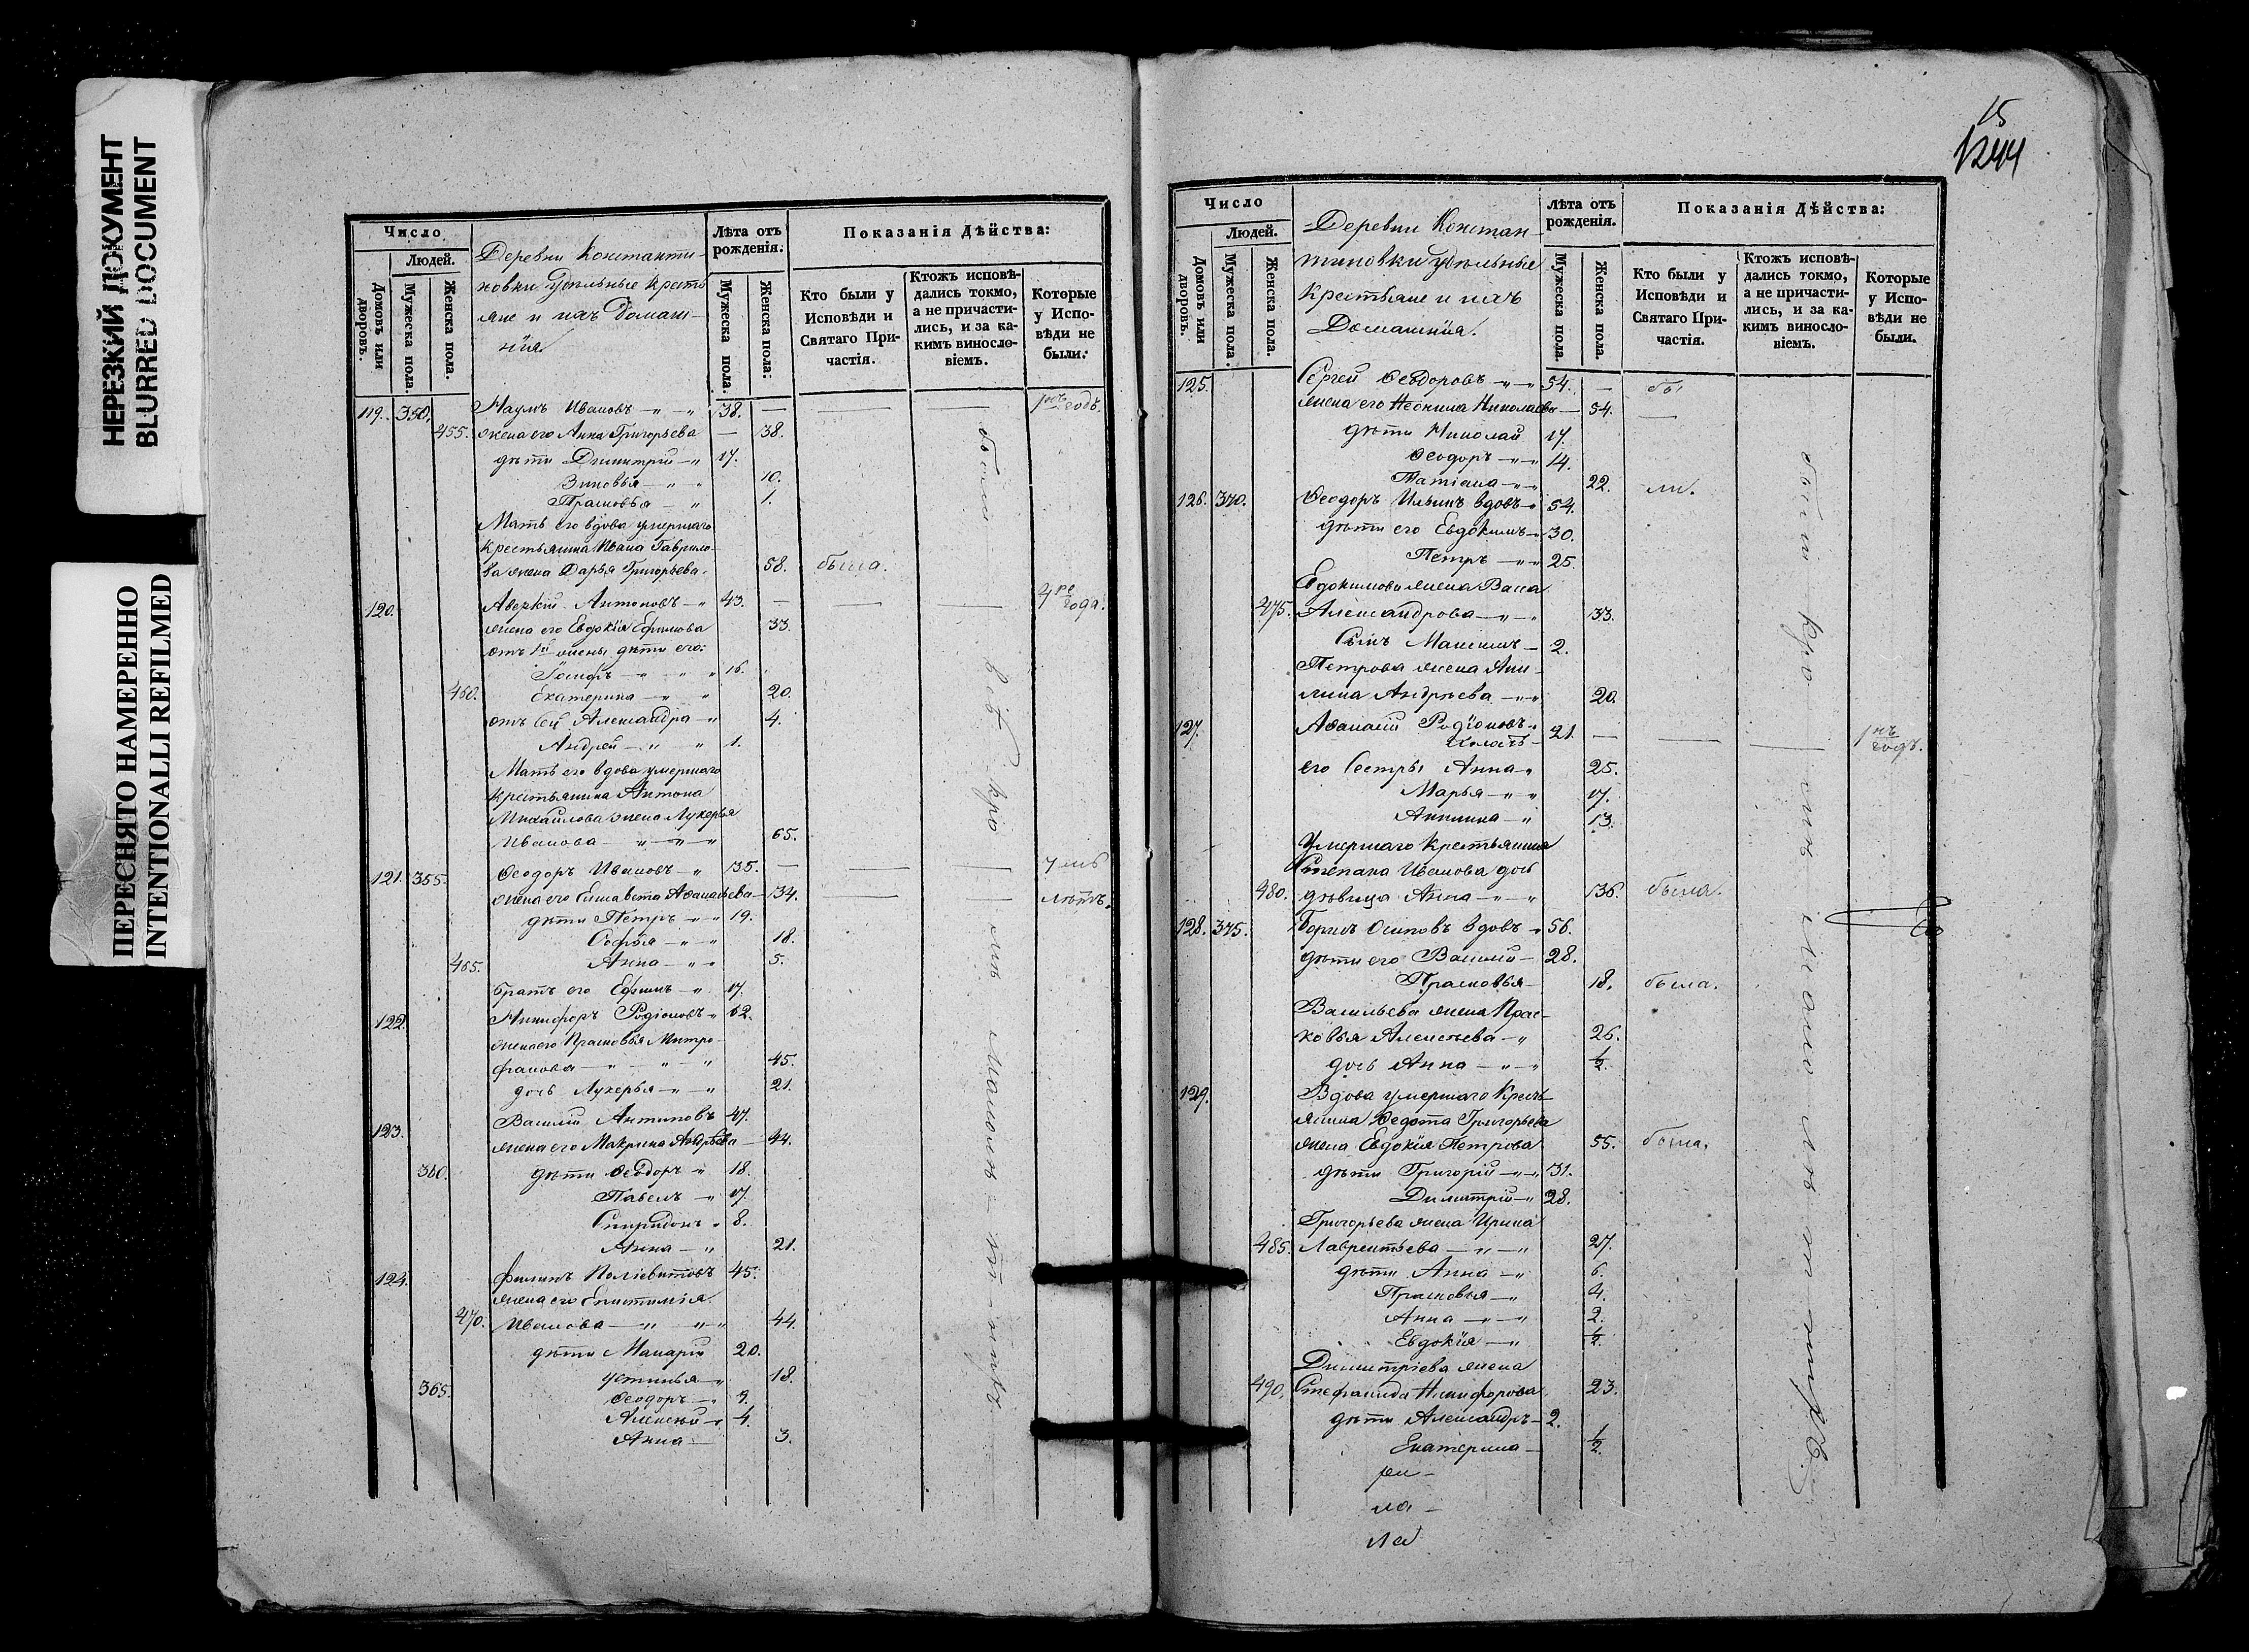 НЕРЕЗКИЙ ДОКУМЕНТ
BLURRED DOCUMENT
ПЕРЕСНЯТО НАМЕРЕННО
INTENTIONALLI REFILMED
Число
Людей.
Домовъ или дворовъ.
Мужеска пола.
Женска пола.
Деревни Константи-
новки удѣльные кресть
яне и ихъ домаш-
нія
Лѣта отъ рожденія.
Мужеска пола.
Женска пола.
Показанія Дѣйства:
Кто были у Исповѣди и Святаго Причастія.
Ктожъ исповѣдались токмо, а не причастились, и за какимъ винословіемъ.
Которые у Исповѣди не были.
119. 350. Наумъ Ивановъ 38. — 1нъ годъ.
455. жена его Анна Григорьева — 38.
дѣти Димитрій 17.
Зиновья 10.
Прасковья 1.
Мать его вдова умершаго
крестьянина Ивана Гаврило-
ва жена Дарья Григорьева 58. была.
120. Аверкій Антоновъ 43. — 4ре года.
жена его Евдокія Ефимова 33.
отъ 1й жены дѣти его:
Іосифъ 16.
460. Екатерина 20.
отъ сей Александра 4.
Андрей 1.
Мать его вдова умершаго
крестьянина Антона
Михайлова жена Лукерья
Иванова 65.
121. 355. Ѳеодоръ Ивановъ 35. — 7 мь
жена его Елисавета Аѳанасьева — 34. лѣтъ.
дѣти Петръ 19.
Софья 18.
465. Анна 5.
братъ его Ефимъ 17.
122. Никифоръ Родіоновъ 62.
жена его Прасковья Митро-
фанова 45.
дочь Лукерья 21.
123. Василій Антиповъ 47.
жена его Макрина Андрѣева — 44.
360. дѣти Ѳеодоръ 18.
Павелъ 17.
Спиридонъ 8.
Анна 21.
124. Филипъ Поліевктовъ 45.
жена его Епистимія
470. Иванова 44.
дѣти Макарій 20.
Устинья 18.
365. Ѳеодоръ 9.
Алексѣй 4.
Анна 3.
15
1244
Число
Людей.
Домовъ или дворовъ.
Мужеска пола.
Женска пола.
Деревни Констан-
тиновки удѣльные
крестьяне и ихъ
Домашнія.
Лѣта отъ рожденія.
Мужеска пола.
Женска пола.
Показанія Дѣйства:
Кто были у Исповѣди и Святаго Причастія.
Ктожъ исповѣдались токмо, а не причастились, и за какимъ винословіемъ.
Которые у Исповѣди не были.
125. Сергей Ѳеодоровъ 54. — бы
жена его Неонила Николаева — 54. —
дѣти Николай 17.
Ѳеодоръ 14.
Татіана 22. ли.
126. 370. Ѳеодоръ Ильинъ вдовъ 54.
дѣти его Евдокимъ 30.
Петръ 25.
Евдокимова жена Васса
475. Александрова 33.
Сынъ Максимъ 2.
Петрова жена Аки-
лина Андрѣева 20.
127. Аѳанасій Родіоновъ
холостъ 21. — 1нъ годъ.
его Сестры Анна 25.
Марья 17.
Акилина 13.
Умершаго крестьянина
Степана Иванова дочь
480. дѣвица Анна 36. была.
128. 375. Борисъ Осиповъ вдовъ 56.
дѣти его Василій 28.
Прасковья 18. была.
Васильева жена Прас-
ковья Алексѣева 26.
дочь Анна ½.
129. Вдова умершаго Кресть-
янина Ѳедота Григорьева
жена Евдокія Петрова 55. была.
дѣти Григорій 31.
Димитрій 28.
Григорьева жена Ирина
485. Лаврентьева 27.
дѣти Анна 6.
Прасковья 4.
Анна 2.
Евдокія ½.
Димитріева жена
490. Стефанида Никифорова 23.
дѣти Александръ 2.
Екатерина ½.
ри-
ла-
ла